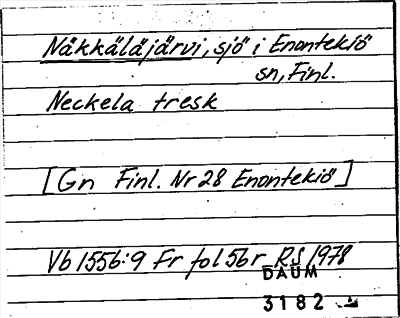 Näkkäläjärvi, sjö i Enontekiö
sn, Finl.
Neckela tresk
[Gn Finl. Nr 28 Enontekiö]
Vb 1556:9 Fr fol 56r RS 1978
DAUM
3182